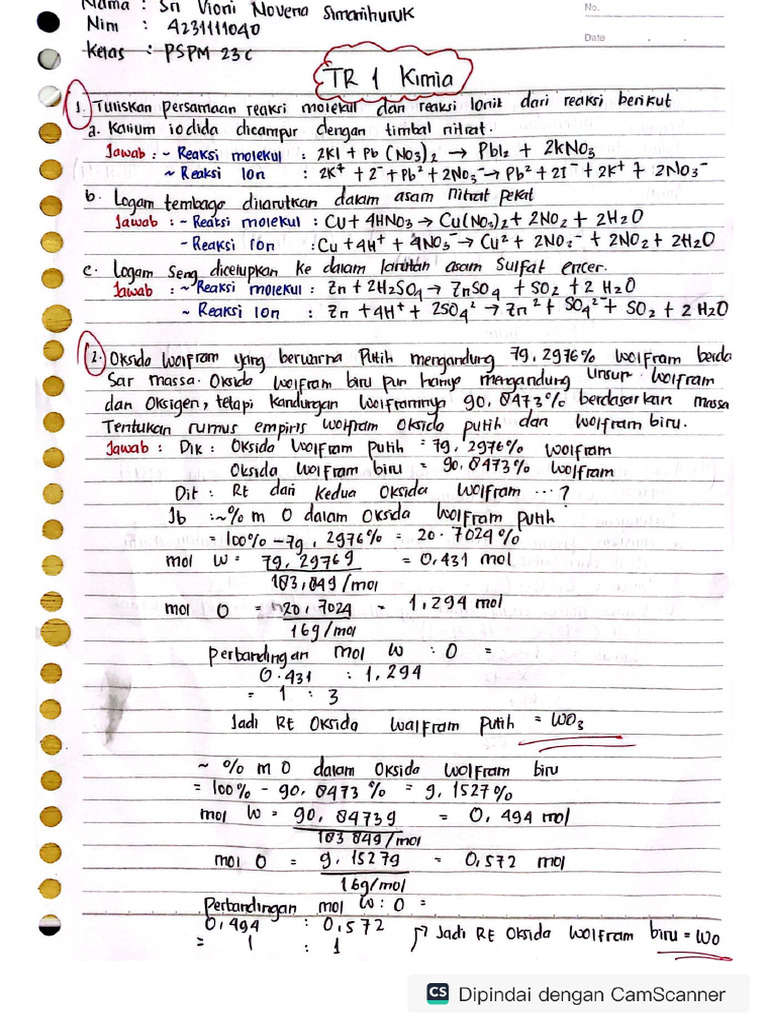 Nama : Sri Vioni Novena Simanihuruk
Nim : 4231111040
Kelas : PSPM 23C
No.
Date
TR 1 Kimia
1. Tuliskan persamaan reaksi molekul dan reaksi Ionik dari reaksi berikut
a. Kalium iodida dicampur dengan timbal nitrat.
Jawab : ~ Reaksi molekul : 2KI + Pb (NO3)2 → PbI2 + 2kNO3
~ Reaksi Ion : 2K⁺ + 2⁻ + Pb² + 2NO3⁻ → Pb² + 2I⁻ + 2K⁺ + 2NO3⁻
b. Logam tembaga dilarutkan dalam asam nitrat pekat
Jawab : ~ Reaksi molekul : Cu + 4HNO3 → Cu(NO3)2 + 2NO2 + 2H2O
- Reaksi Ion : Cu + 4H⁺ + 4NO3⁻ → Cu² + 2NO3⁻ + 2NO2 + 2H2O
c. Logam Seng dicelupkan ke dalam larutan asam Sulfat encer.
Jawab : ~ Reaksi molekul : Zn + 2H2SO4 → ZnSO4 + SO2 + 2 H2O
~ Reaksi Ion : Zn + 4H⁺ + 2SO4² → Zn²⁺ + SO4²⁻ + SO2 + 2 H2O
2. Oksida Wolfram yang berwarna Putih mengandung 79,2976% Wolfram berda
Sar massa. Oksida Wolfram biru pun hanya mengandung Unsur Wolfram
dan Oksigen, tetapi kandungan Wolframnya 90,8473% berdasarkan massa
Tentukan rumus empiris Wolfram Oksida putih dan Wolfram biru.
Jawab : Dik : Oksida Wolfram Putih = 79,2976% Wolfram
Oksida Wolfram biru = 90,8473% Wolfram
Dit : RE dari Kedua Oksida Wolfram ... ?
Jb : ~ % m O dalam Oksida Wolfram putih
= 100% - 79,2976% = 20.7024%
mol W = 79,2976g = 0,431 mol
183,849/mol
mol O = 20,7024 = 1,294 mol
16g/mol
Perbandingan mol W : O =
0.431 : 1,294
= 1 : 3
Jadi RE Oksida Walfram Putih = WO3
~ % m O dalam Oksida Wolfram biru
= 100% - 90,8473 % = 9,1527%
mol W = 90,8473g = 0,494 mol
183 849/mol
mol O = 9,1527g = 0,572 mol
16g/mol
Perbandingan mol W : O =
0,494 : 0,572
= 1 : 1
Jadi RE Oksida Wolfram biru = WO
CS Dipindai dengan CamScanner